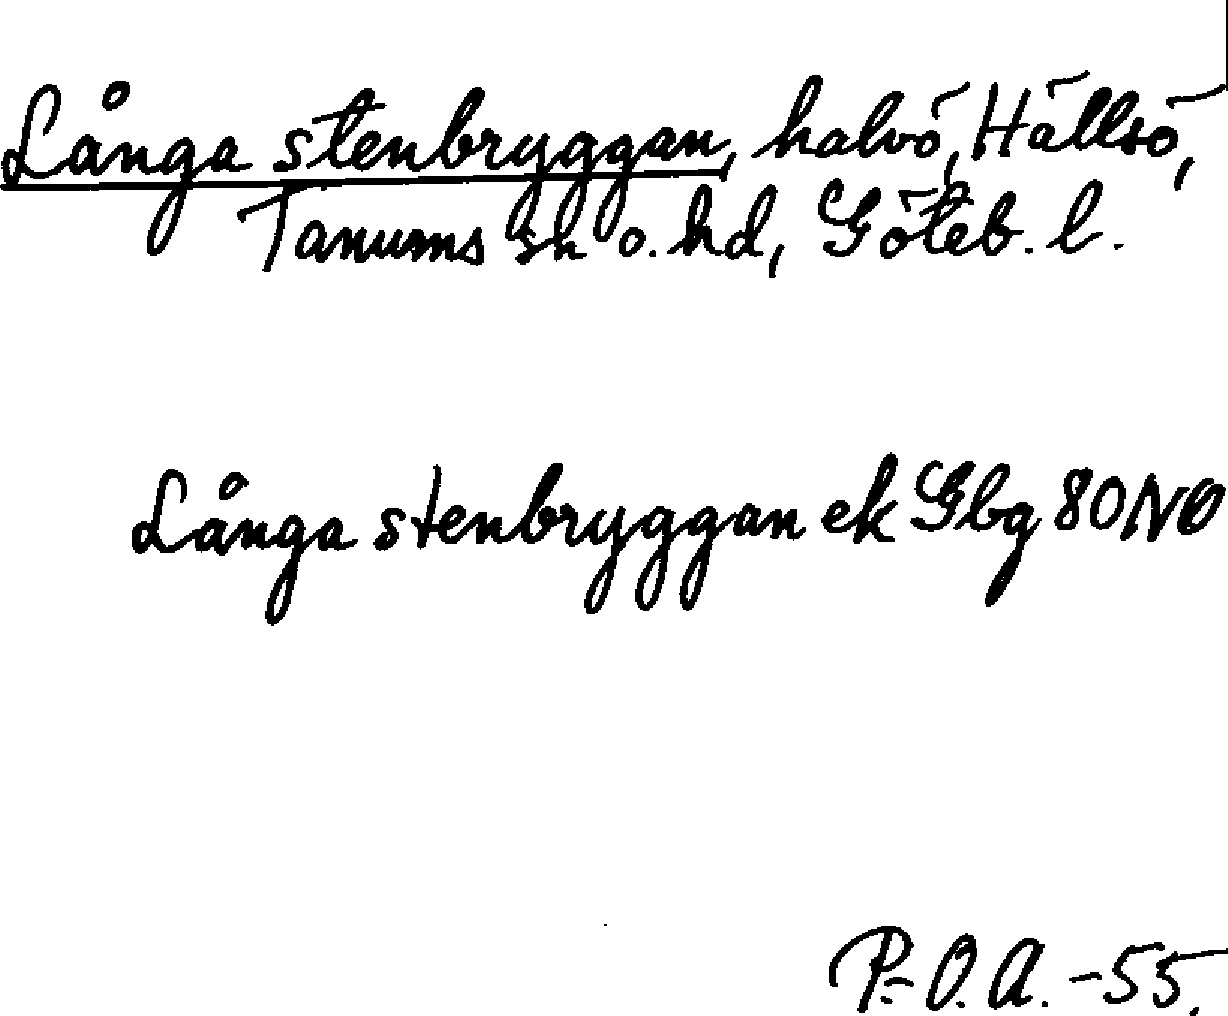 Långa stenbryggan, halvö, Hällsö,
Tanums sn o. hd, Göteb. l.
Långa stenbryggan ek Gbg 80NO
P.-O.A. -55.